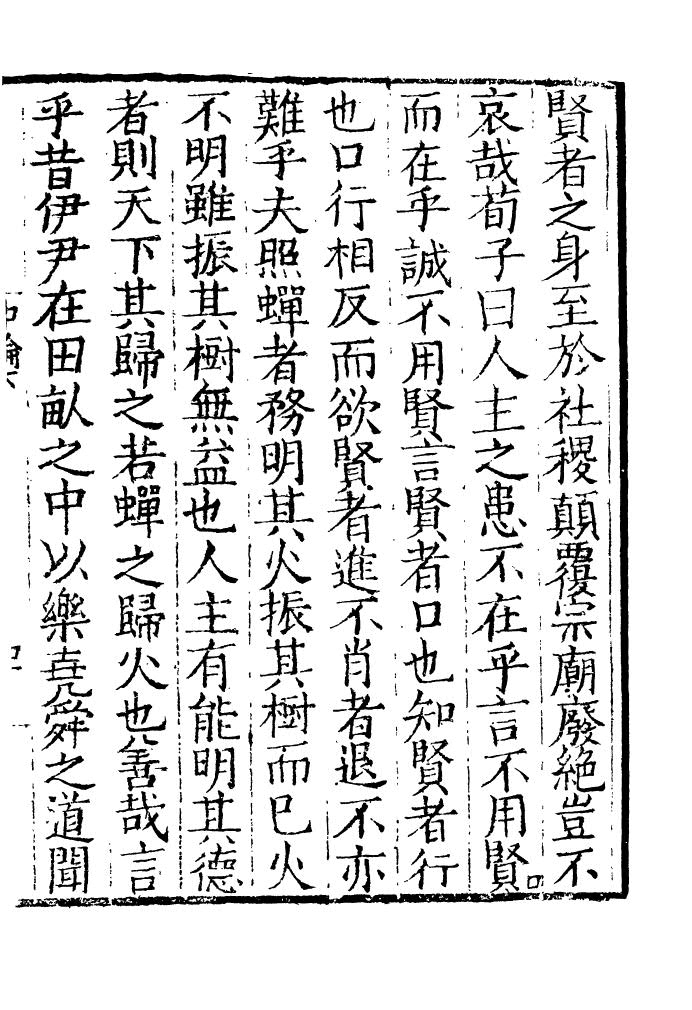 賢者之身至於社稷顛覆宗廟廢絶豈不
哀哉荀子曰人主之患不在乎言不用賢
而在乎誠不用賢言賢者口也知賢者行
也口行相反而欲賢者進不肖者退不亦
難乎夫照蟬者務明其火振其樹而巳火
不明雖振其樹無益也人主有能明其德
者則天下其歸之若蟬之歸火也善哉言
乎昔伊尹在田畝之中以樂堯舜之道聞